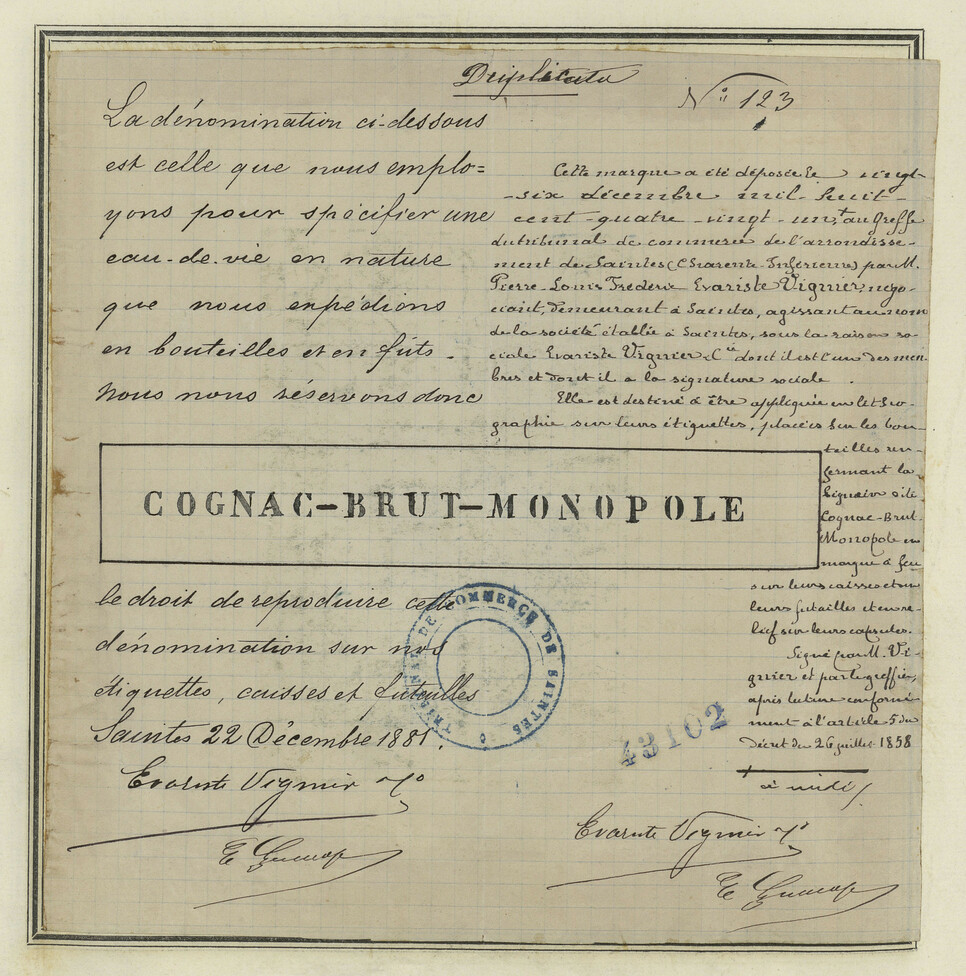 Duplicata
N° 123
La dénomination ci-dessous
est celle que nous emplo=
yons pour spécifier une
eau-de-vie en nature
que nous expédions
en bouteilles et en fûts.
Nous nous réservons donc
COGNAC-BRUT-MONOPOLE
le droit de reproduire cette
dénomination sur nos
étiquettes, caisses et futailles
Saintes 22 Décembre 1881.
Evariste Vignier
Cette marque a été déposée le vingt-
-six décembre mil-huit-
cent-quatre-vingt-un, au Greffe
du tribunal de commerce de l'arrondisse-
ment de Saintes (Charente-Inférieure) par M.
Pierre-Louis Frédéric Evariste Vignier, négo-
ciant, demeurant à Saintes, agissant au nom
de la société établie à Saintes, sous la raison so-
ciale Evariste Vignier & Cie dont il est l'un des mem-
bres et dont il a la signature sociale.
Elle est destiné à être appliquée en litho-
graphie sur leurs étiquettes, placées sur les bou-
teilles ren-
fermant la
liqueur dite
Cognac-Brut-
Monopole en
marque à feu
sur leurs caisses et sur
leurs futailles et en re-
lief sur leurs capsules.
Signé par M. Vi-
gnier et par le greffier,
après lecture conformé-
ment à l'article 5 du
décret du 26 juillet 1858
à midi
Evariste Vignier
TRIBUNAL DE COMMERCE DE SAINTES
43102